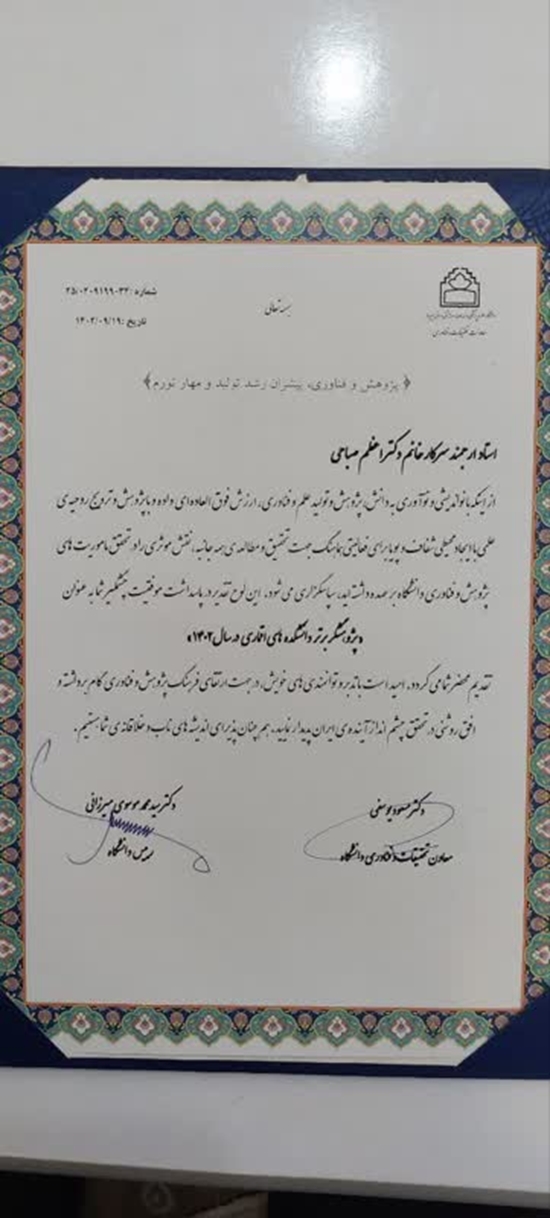 شماره :۲۵/۰۲۰۹۱۹۹-۳۴
بسمه تعالی
تاریخ :۱۴۰۲/۰۹/۱۹
معاونت تحقیقات و فناوری
﴿ پژوهش و فناوری، پیشران رشد تولید و مهار تورم ﴾
استاد ارجمند سرکار خانم دکتر اعظم صباحی
از اینکه با نواندیشی و نوآوری به دانش، پژوهش و تولید علم و فناوری، ارزش فوق العاده ای داده و با پژوهش و ترویج روحیه ی
علمی با ایجاد محیطی شفاف و پویا برای فعالیتی هماهنگ جهت تحقیق و مطالعه ی همه جانبه، نقش موثری را در تحقق ماموریت های
پژوهش و فناوری دانشگاه بر عهده داشته اید، سپاسگزاری می شود. این لوح تقدیر در پاسداشت موفقیت چشمگیر شما به عنوان
«پژوهشگر برتر دانشکده های اقماری در سال ۱۴۰۲»
تقدیم محضر شما می گردد. امید است با تدبر و توانمندی های خویش، در جهت ارتقای فرهنگ پژوهش و فناوری گام برداشته و
افق روشنی در تحقق چشم انداز آینده ی ایران پدیدار نمایید، هم چنان پذیرای اندیشه های ناب و خلاقانه ی شما هستیم.
دکتر مسعود یوسفی
معاون تحقیقات و فناوری دانشگاه
دکتر سید محمد موسوی میرزائی
رئیس دانشگاه